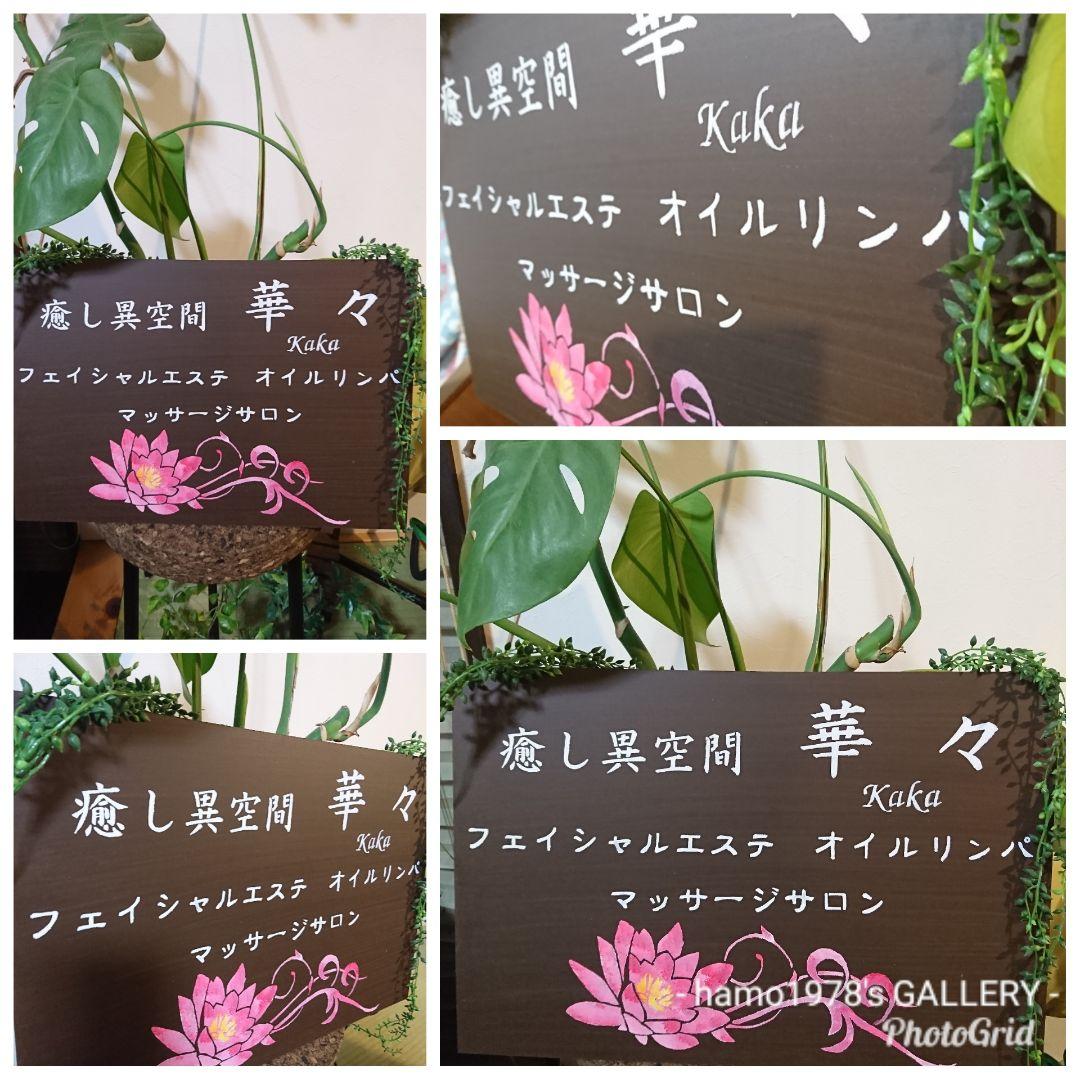 癒し異空間 華々
Kaka
フェイシャルエステ オイルリンパ
マッサージサロン
癒し異空間 華々
Kaka
フェイシャルエステ オイルリンパ
マッサージサロン
癒し異空間 華々
Kaka
フェイシャルエステ オイルリンパ
マッサージサロン
癒し異空間 華々
Kaka
フェイシャルエステ オイルリンパ
マッサージサロン
- hamo1978's GALLERY -
PhotoGrid